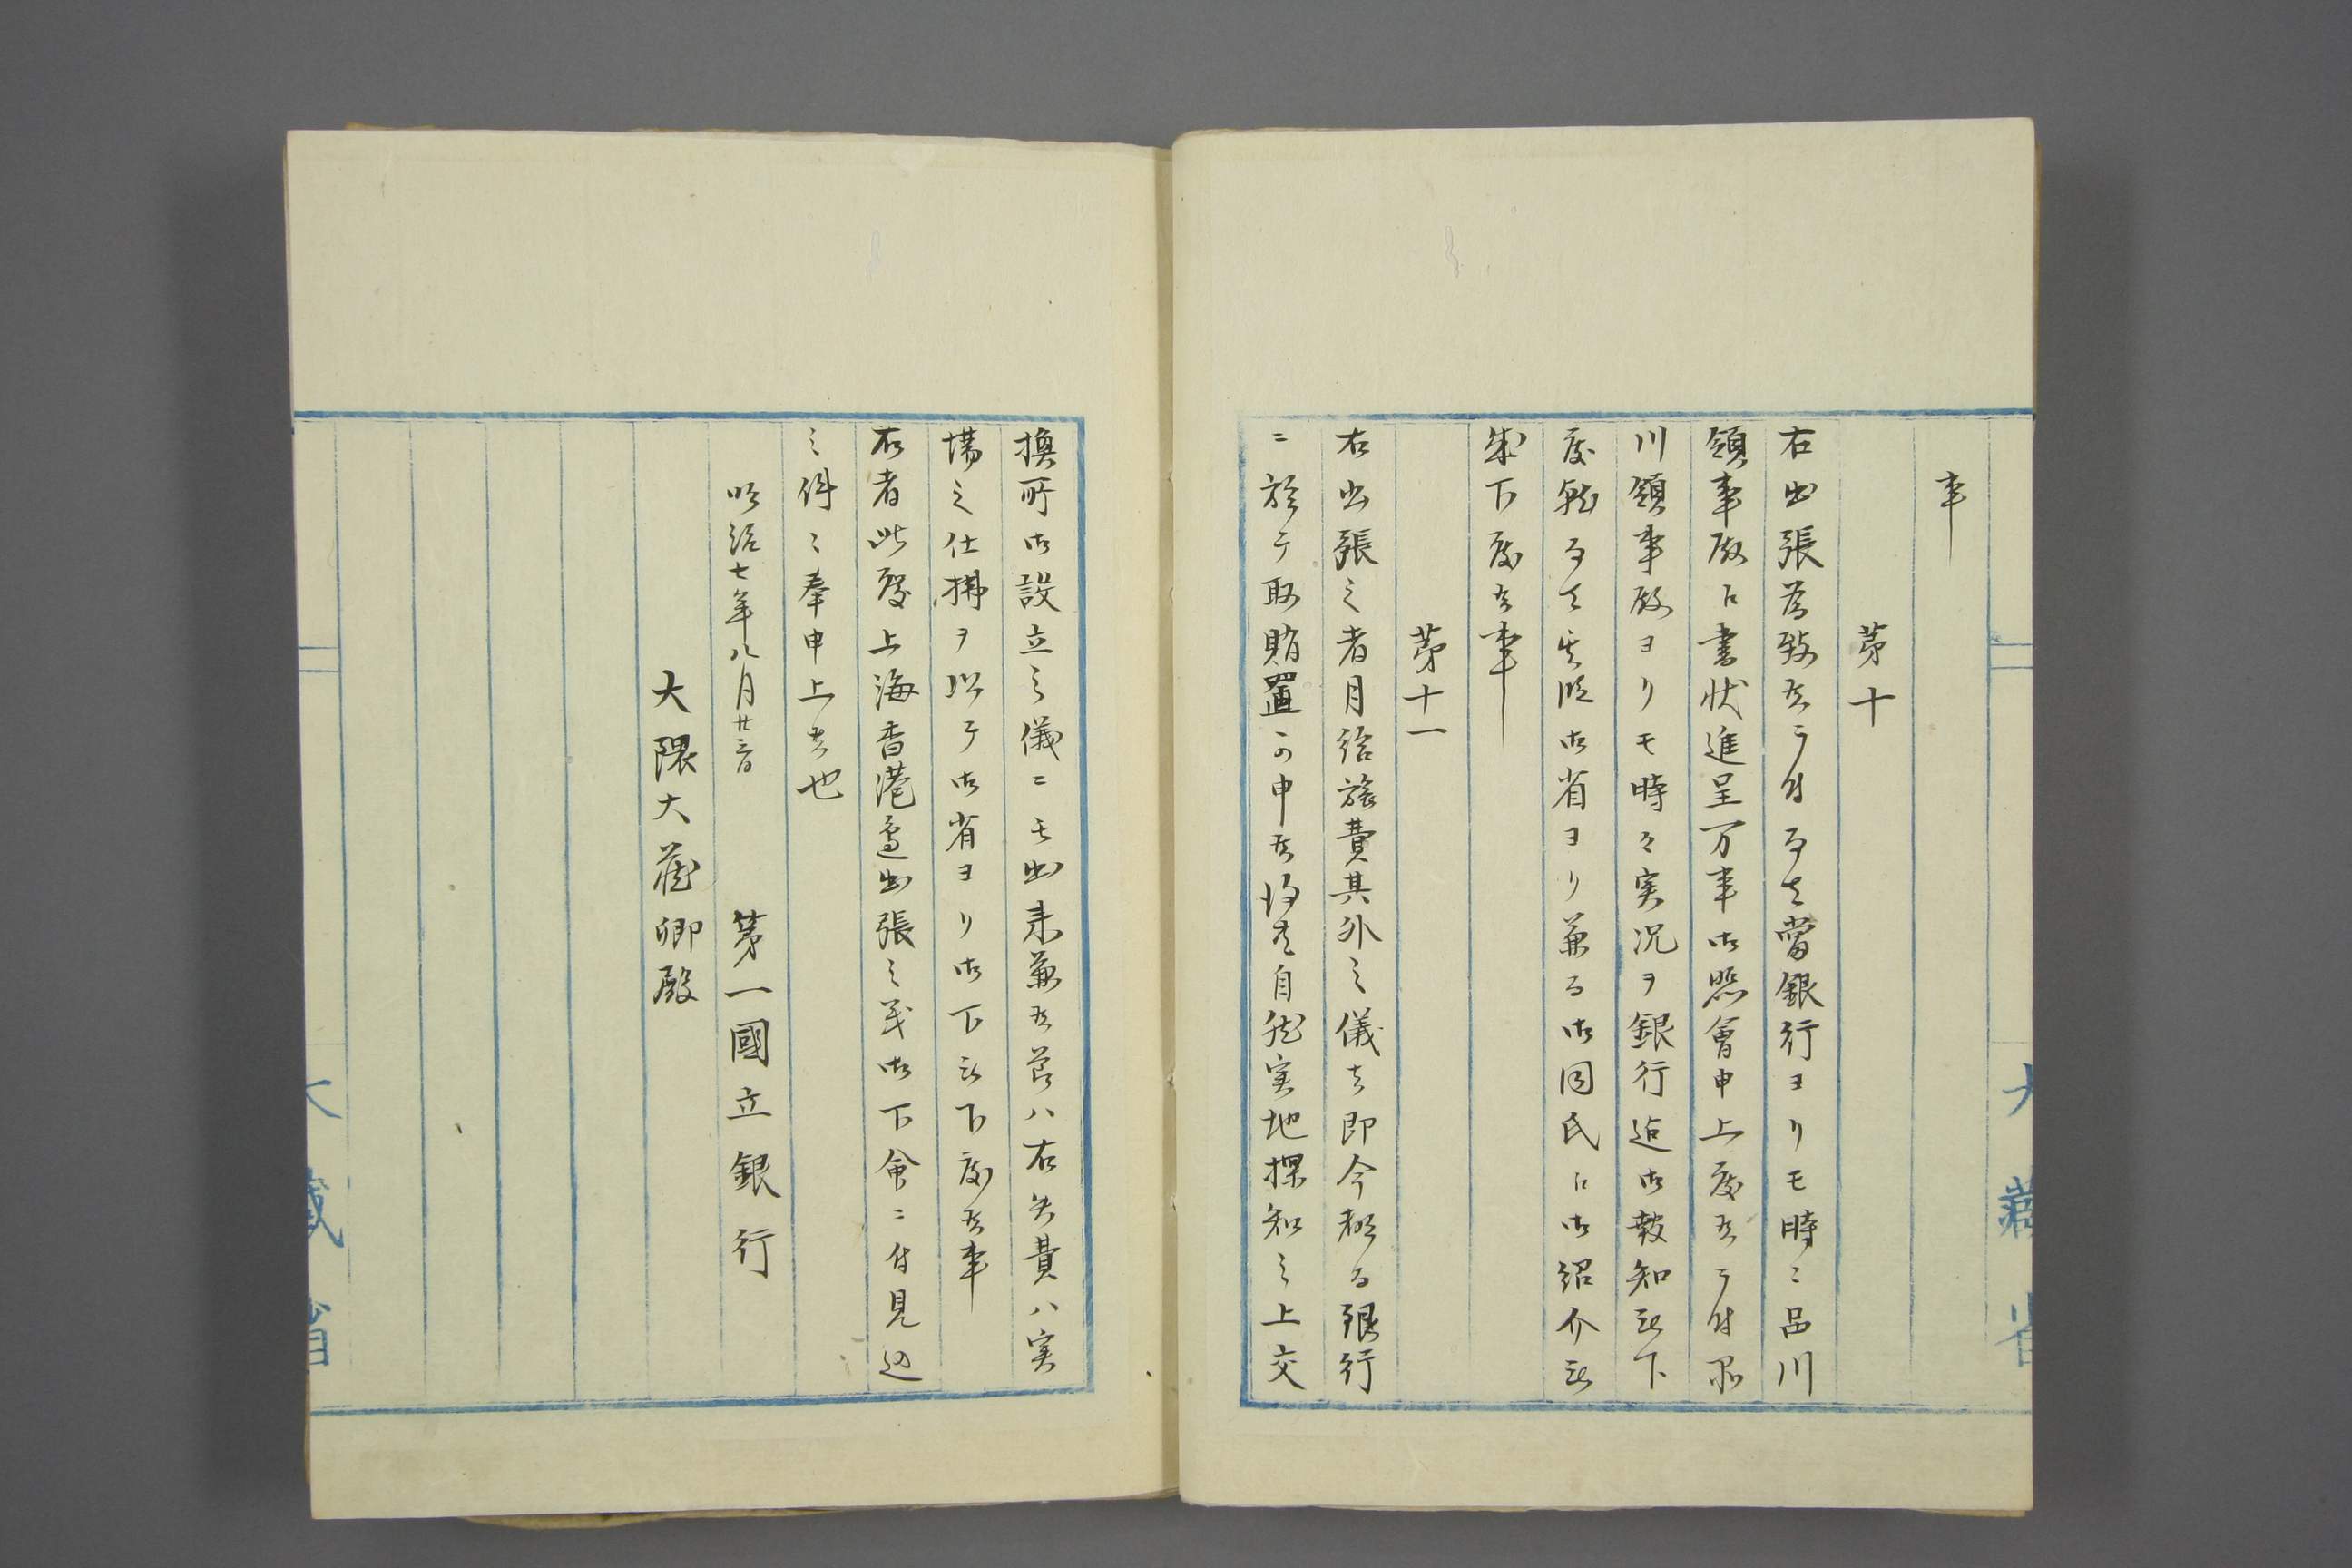 事
第十
右出張為致候ニ付而者當銀行ヨリモ時々品川
領事殿江書状進呈万事御照會申上度候ニ付品
川領事殿ヨリモ時々実況ヲ銀行迄御報知被下
度就而者其段御省ヨリ兼而御同氏江御紹介被
成下度候事
第十一
右出張之者月給旅費其外之儀者即今都而銀行
ニ於テ取賄置可申候得共自然実地探知之上交
換所御設立之儀ニ至出来兼候節ハ右失費ハ実
場之仕拂ヲ以テ御省ヨリ御下被下度候事
右者此度上海香港邊出張之義御下命ニ付見込
之件々奉申上候也
明治七年八月廿
第一國立銀行
大隈大蔵卿殿
大藏省
大藏省